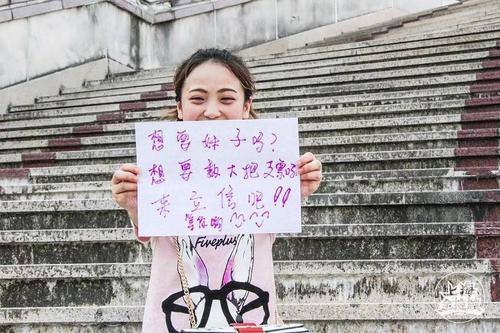 想要妹子吗?
想要数大把支票吗
来立信吧!!
等你哟
Fiveplus
上海